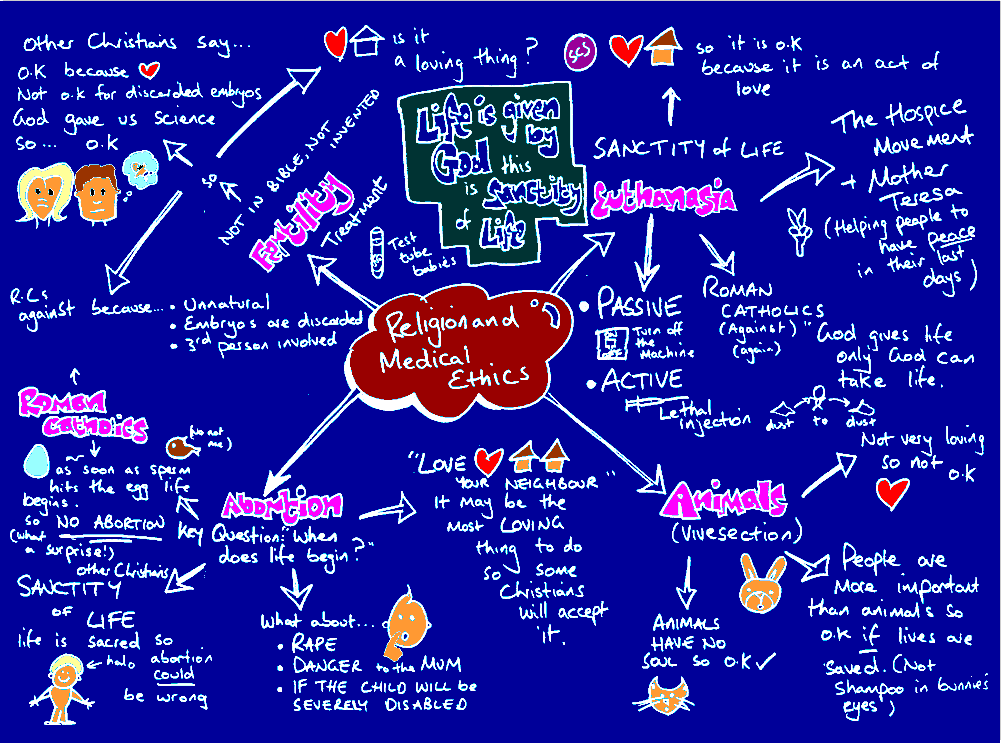 Religion and
Medical
Ethics
Life is given
by
God this
is Sanctity
of
Life
Fertility
Treatment
Test
tube
babies
NOT IN BIBLE, NOT
INVENTED
so
is it
a loving thing?
Other Christians say...
O.K because
Not o.k for discarded embryos
God gave us science
so... o.k
R.Cs
against because...
• Unnatural
• Embryos are discarded
• 3rd person involved
Euthanasia
SANCTITY of LIFE
so it is o.k
because it is an act of
love
The Hospice
Movement
+ Mother
Teresa
(Helping people to
have peace
in their last
days)
• PASSIVE
Turn off
the
Machine
• ACTIVE
Lethal
injection
ROMAN
CATHOLICS
(Against)
(again)
"God gives life
only God can
take life.
dust to dust
Animals
(Vivesection)
Not very loving
so not
o.k
People are
More important
than animals so
o.k if lives are
saved. (Not
shampoo in bunnies'
eyes")
ANIMALS
HAVE NO
SOUL SO O.K ✓
Abortion
Key
Question: "When
does life begin?"
"LOVE
YOUR NEIGHBOUR"
It may be the
Most LOVING
thing to do
so some
Christians
will accept
it.
What about...
• RAPE
• DANGER to the MUM
• IF THE CHILD WILL BE
SEVERELY DISABLED
Roman
Catholics
(No not
me)
as soon as sperm
hits the egg life
begins.
so NO ABORTION
(what
a surprise!)
other Christians
SANCTITY
of
LIFE
life is sacred so
halo
abortion
could
be wrong